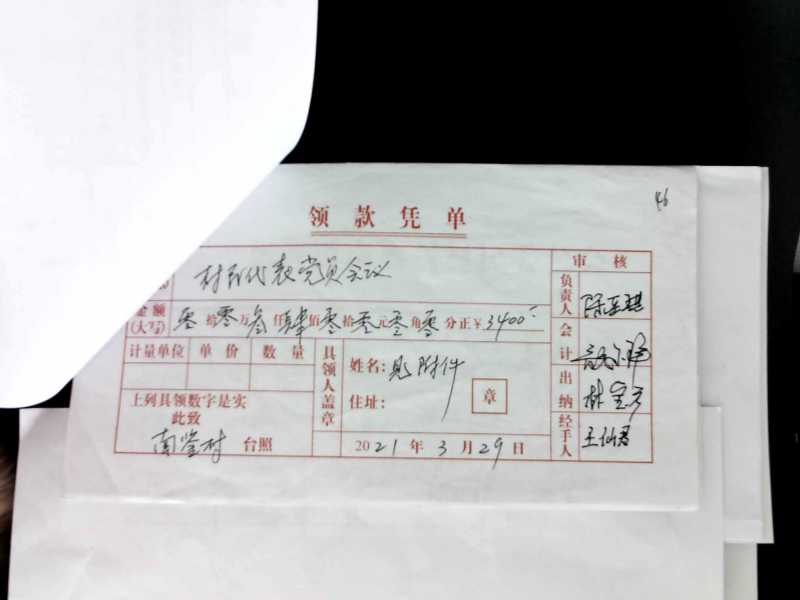 46
领款凭单
村民代表党员会议
审核
金额(大写) 零拾零万叁仟肆佰零拾零元零角零分正¥3400
计量单位 单价 数量
具领人盖章
姓名:见附件
住址:
章
上列具领数字是实
此致
南鉴村 台照
2021年3月29日
负责人
会计
出纳 林
经手人 王仙君